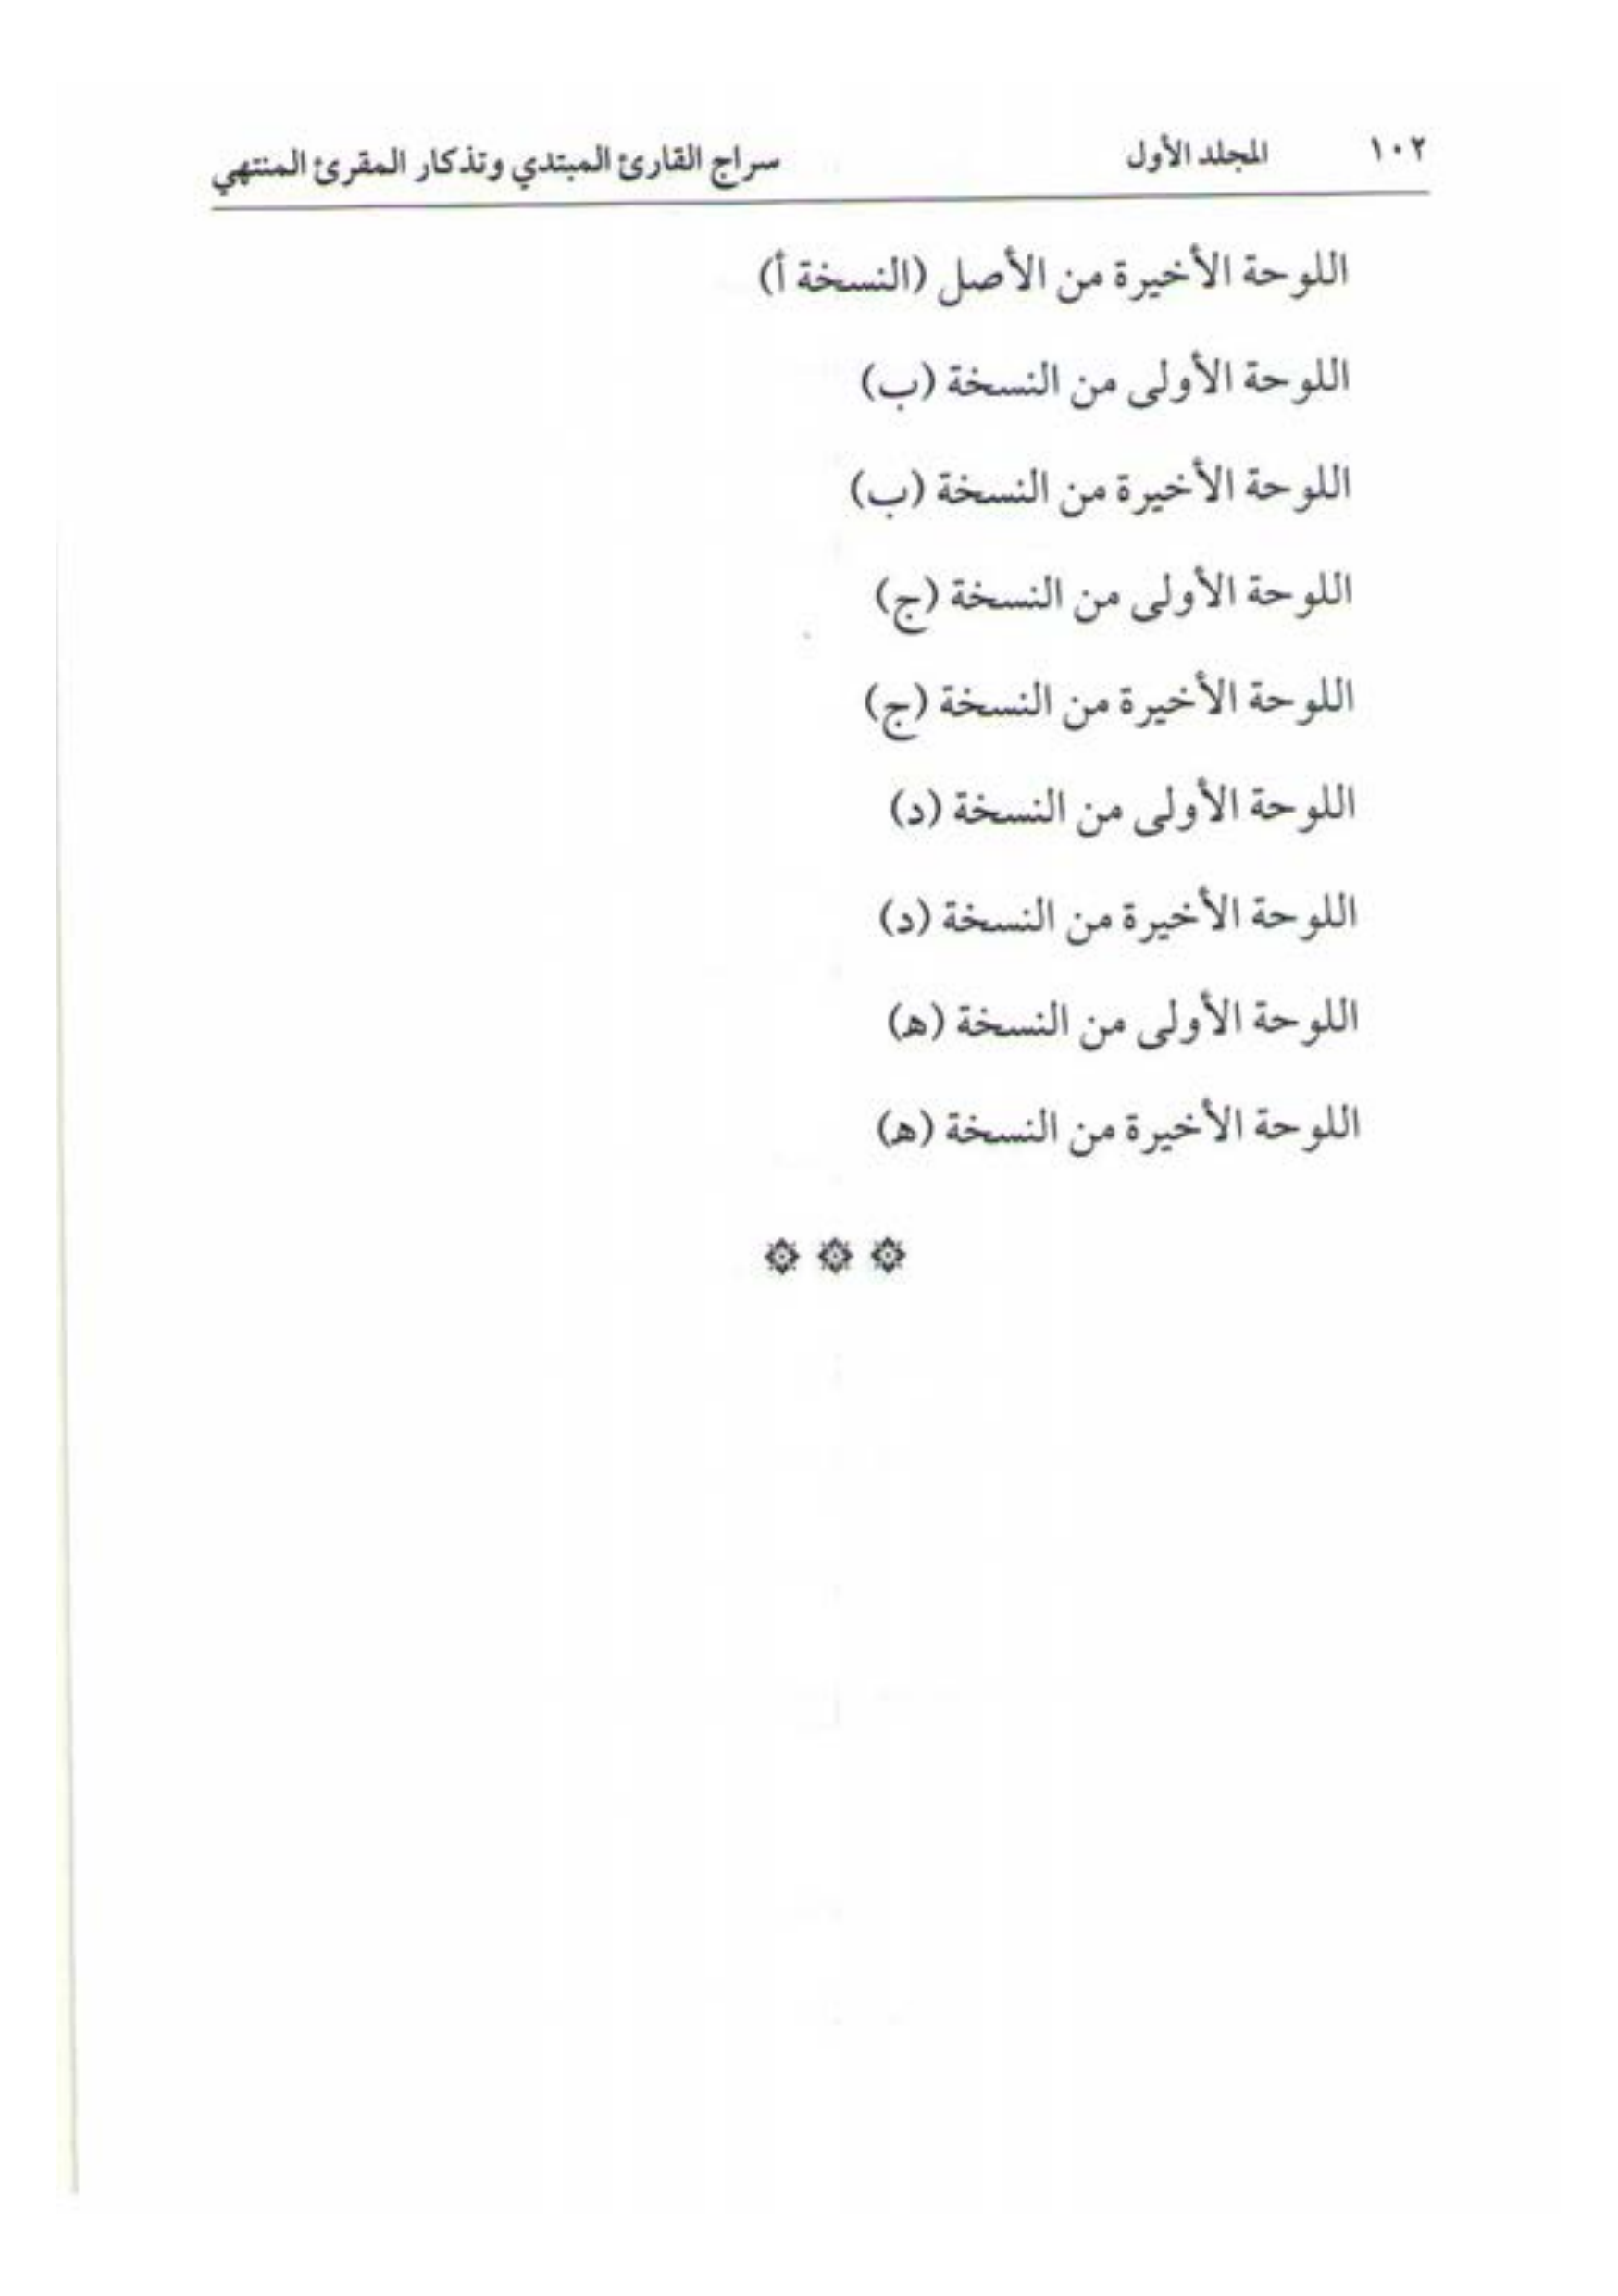 ١٠٢ المجلد الأول سراج القارئ المبتدي وتذكار المقرئ المنتهي
اللوحة الأخيرة من الأصل (النسخة أ)
اللوحة الأولى من النسخة (ب)
اللوحة الأخيرة من النسخة (ب)
اللوحة الأولى من النسخة (ج)
اللوحة الأخيرة من النسخة (ج)
اللوحة الأولى من النسخة (د)
اللوحة الأخيرة من النسخة (د)
اللوحة الأولى من النسخة (ه)
اللوحة الأخيرة من النسخة (ه)